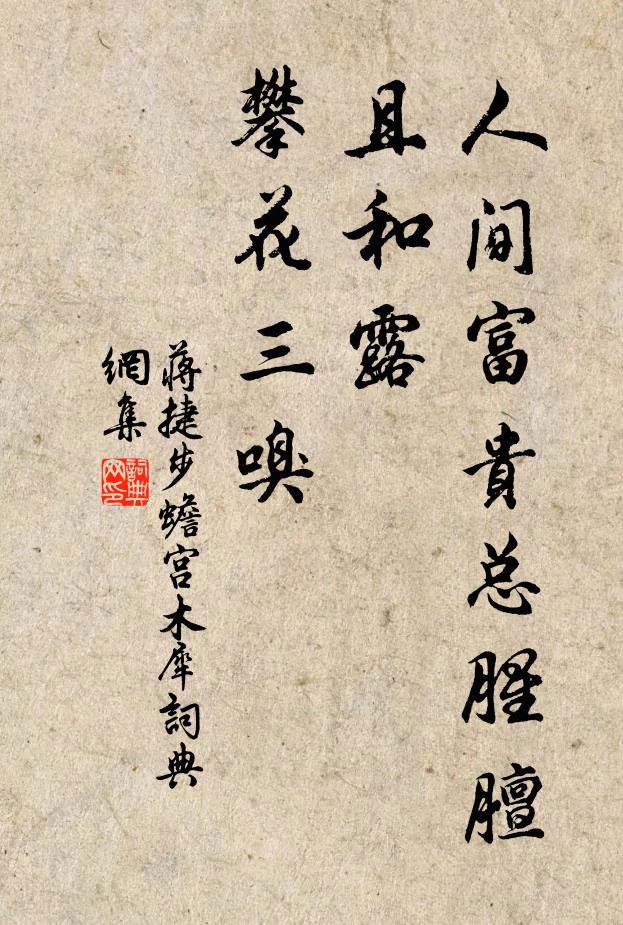 人间富貴总腥膻
且和露
攀花三嗅
蒋捷步蟾宫木犀詞典
網集
詞典
网印